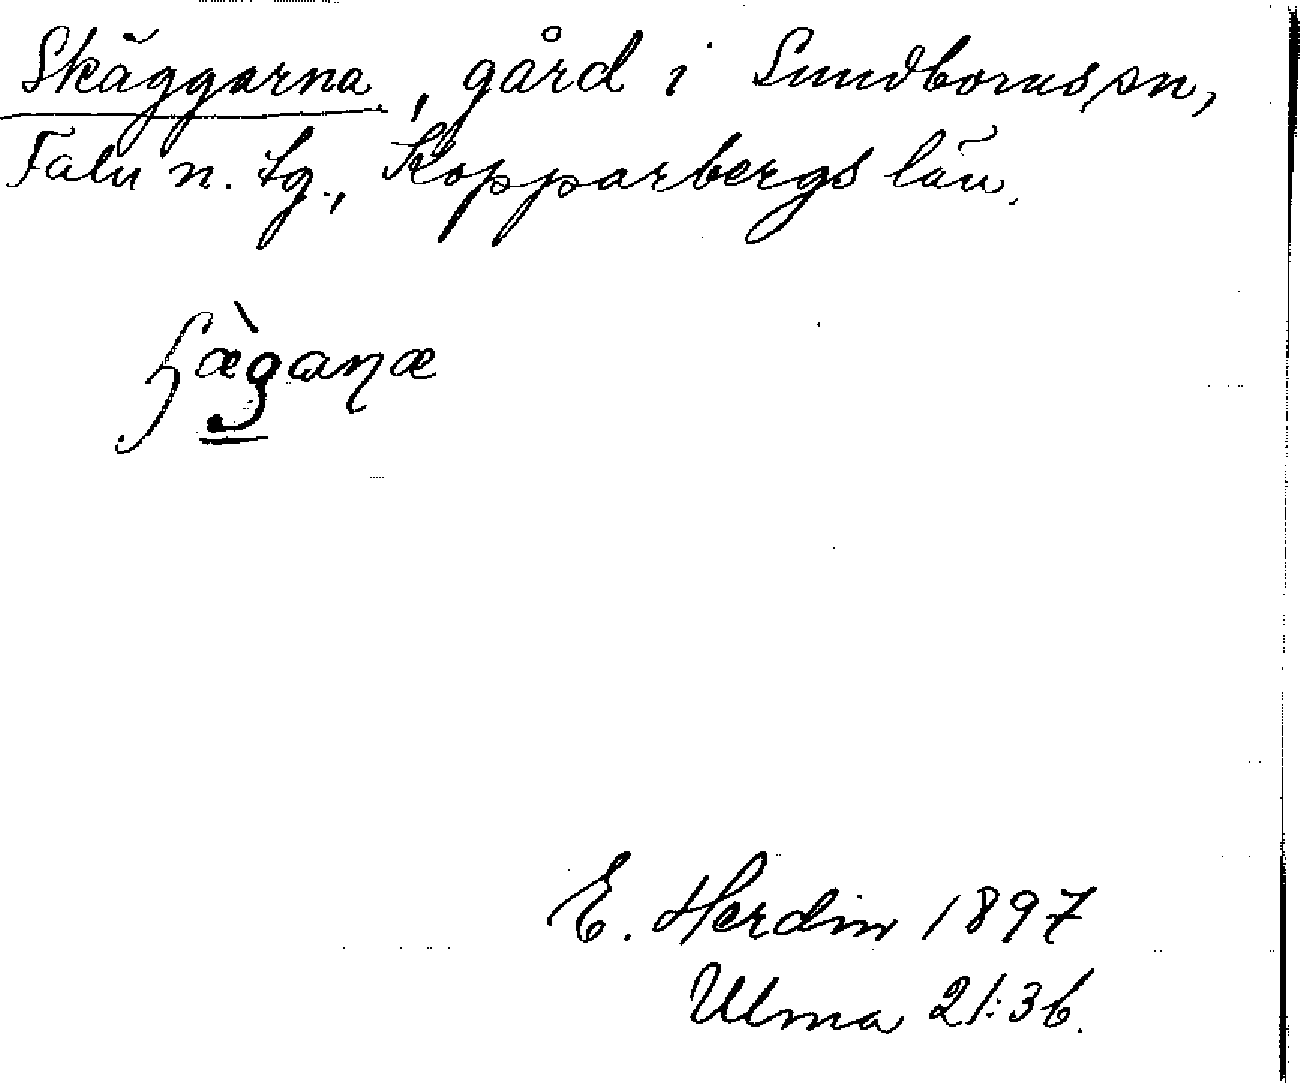 Skäggarna, gård i Sundborns sn,
Falu n. tg., Kopparbergs län.
E. Herdin 1897
Ulma 21:36.